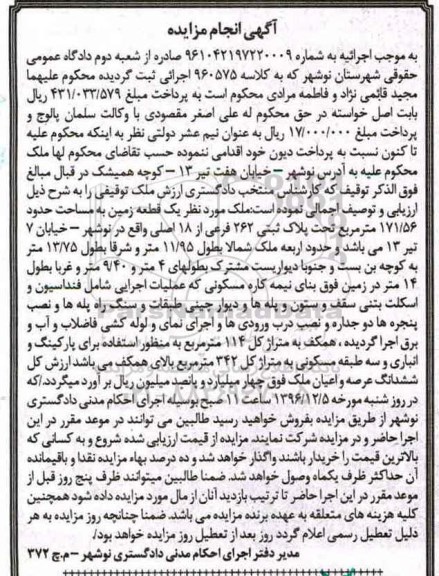 آگهی انجام مزایده
به موجب اجرائیه به شماره ۹۶۱۰۴۲۱۹۷۲۲۰۰۰۹ صادره از شعبه دوم دادگاه عمومی
حقوقی شهرستان نوشهر که به کلاسه ۹۶۰۵۷۵ اجرائی ثبت گردیده محکوم علیهما
مجید قائمی نژاد و فاطمه مرادی محکوم است به پرداخت مبلغ ۴۳۱/۰۳۳/۵۷۹ ریال
بابت اصل خواسته در حق محکوم له علی اصغر مقصودی با وکالت سلمان پالوج و
پرداخت مبلغ ۱۷/۰۰۰/۰۰۰ ریال به عنوان نیم عشر دولتی نظر به اینکه محکوم علیه
تا کنون نسبت به پرداخت دیون خود اقدامی ننموده حسب تقاضای محکوم لها ملک
محکوم علیه به آدرس نوشهر – خیابان هفت تیر ۱۳ – کوچه همیشک در قبال مبالغ
فوق الذکر توقیف که کارشناس منتخب دادگستری ارزش ملک توقیفی را به شرح ذیل
ارزیابی و توصیف اجمالی نموده است:ملک مورد نظر یک قطعه زمین به مساحت حدود
۱۷۱/۵۶ مترمربع تحت پلاک ثبتی ۲۶۲ فرعی از ۱۸ اصلی واقع در نوشهر – خیابان ۷
تیر ۱۳ می باشد و حدود اربعه ملک شمالا بطول ۱۱/۹۵ متر و شرقا بطول ۱۳/۷۵ متر
به کوچه بن بست و جنوبا دیواریست مشترک بطولهای ۴ متر و ۹/۴۰ متر و غربا بطول
۱۴ متر در زمین فوق بنای نیمه کاره مسکونی که عملیات اجرایی شامل فنداسیون و
اسکلت بتنی سقف و ستون و پله ها و دیوار چینی طبقات و سنگ راه پله ها و نصب
پنجره ها دو جداره و نصب درب ورودی ها و اجرای نمای و لوله کشی فاضلاب و آب و
برق اجرا گردیده ، همکف به متراژ کل ۱۱۴ مترمربع به منظور استفاده برای پارکینگ و
انباری و سه طبقه مسکونی به متراژ کل ۳۴۲ متر مربع بالای همکف می باشد ارزش کل
ششدانگ عرصه و اعیان ملک فوق چهار میلیارد و پانصد میلیون ریال بر آورد میگردد./که
در روز شنبه مورخه ۱۳۹۶/۱۲/۵ ساعت ۱۱ صبح بوسیله اجرای احکام مدنی دادگستری
نوشهر از طریق مزایده بفروش خواهید رسید طالبین می توانند در موعد مقرر در این
اجرا حاضر و در مزایده شرکت نمایند. مزایده از قیمت ارزیابی شده شروع و به کسانی که
بالاترین قیمت را خریدار باشند واگذار خواهد شد و ده درصد بهاء مزایده نقدا و باقیمانده
آن حداکثر ظرف یکماه وصول خواهد شد. ضمنا طالبین میتوانند ظرف پنج روز قبل از
موعد مقرر در این اجرا حاضر تا ترتیب بازدید آنان از مال مورد مزایده داده شود همچنین
کلیه هزینه های متعلقه به عهده برنده مزایده می باشد. ضمنا چنانچه روز مزایده به هر
دلیل تعطیل رسمی اعلام گردد روز بعد از تعطیل روز مزایده خواهد بود./
مدیر دفتر اجرای احکام مدنی دادگستری نوشهر –م.چ ۳۷۲